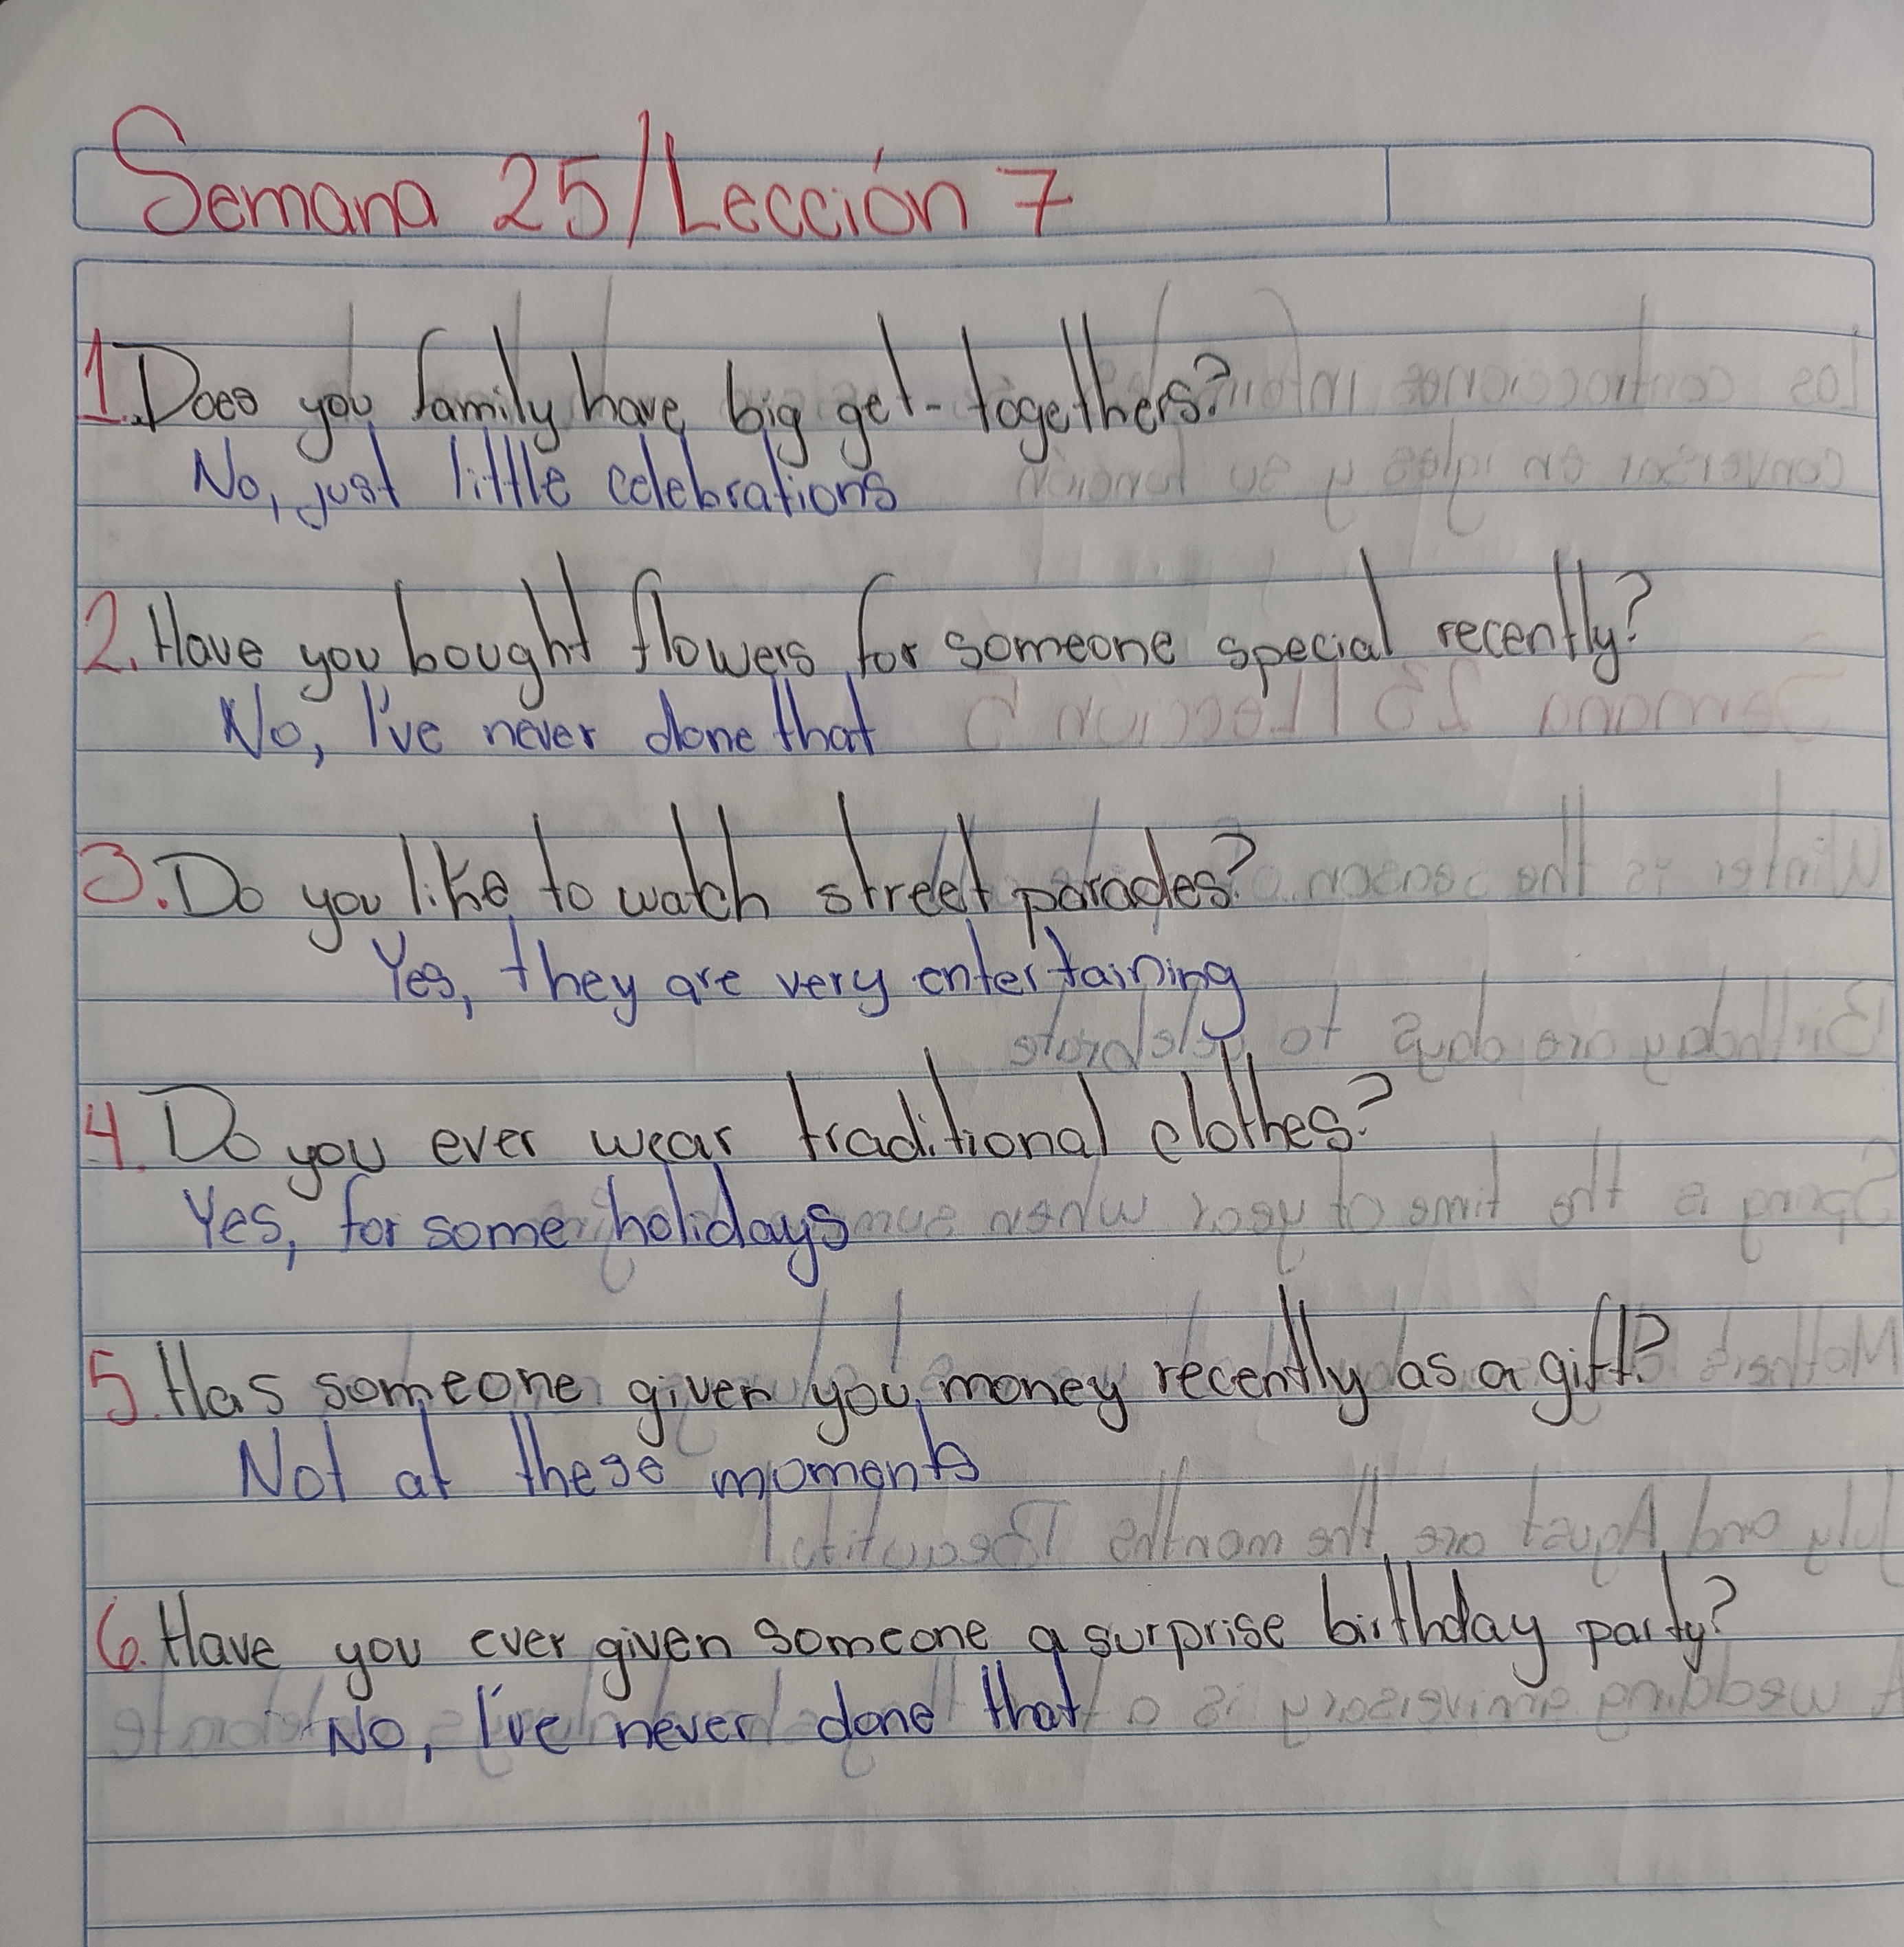 Semana 25/Lección 7
1. Does you family have big get-togethers?
No, just little celebrations
2. Have you bought flowers for someone special recently?
No, I've never done that
3. Do you like to watch street parades?
Yes, they are very entertaining
4. Do you ever wear traditional clothes?
Yes, for some holidays
5. Has someone given you money recently as a gift?
Not at these moments
6. Have you ever given someone a surprise birthday party?
No, I've never done that